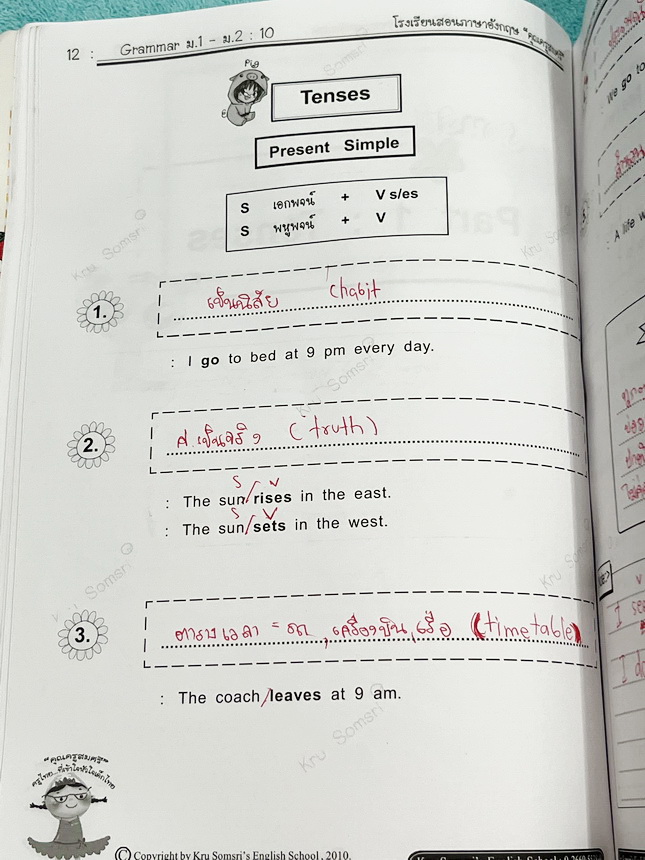 12 : Grammar ม.1 - ม.2 : 10
โรงเรียนสอนภาษาอังกฤษ "คุณครูสมศรี"
Pig
Tenses
Present Simple
S เอกพจน์ + V s/es
S พหูพจน์ + V
1. เป็นนิสัย (habit
: I go to bed at 9 pm every day.
2. ส.เป็นจริง (truth)
S V
: The sun/rises in the east.
S V
: The sun/sets in the west.
3. ตารางเวลา = รถ, เครื่องบิน, เรือ (timetable)
: The coach/leaves at 9 am.
"คุณครูสมศรี"
ครูไทย...ที่เข้าใจหัวใจเด็กไทย
© Copyright by Kru Somsri's English School, 2010.
Kru Somsri
We go to
: A life w